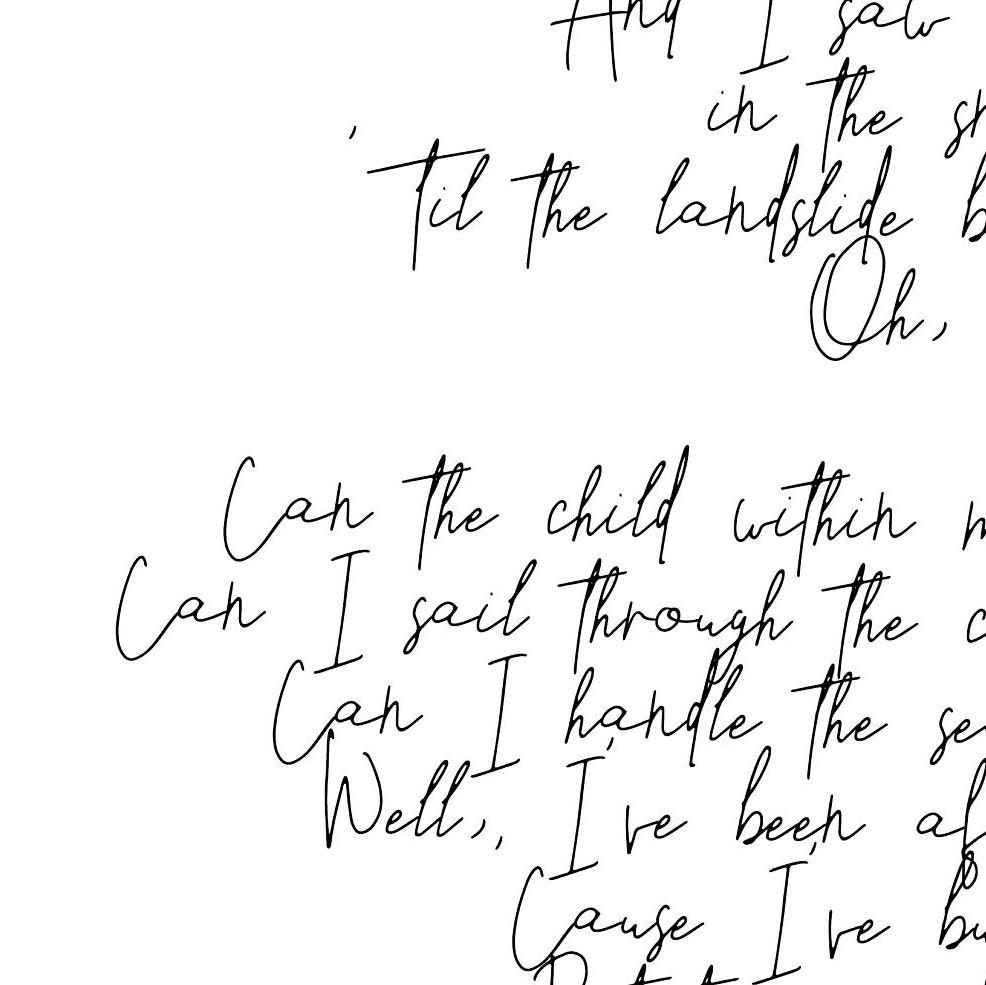 And I saw
in the
'til the landslide
Oh,
Can the child within
Can I sail through the
Can I handle the
Well, I've been
'Cause I've